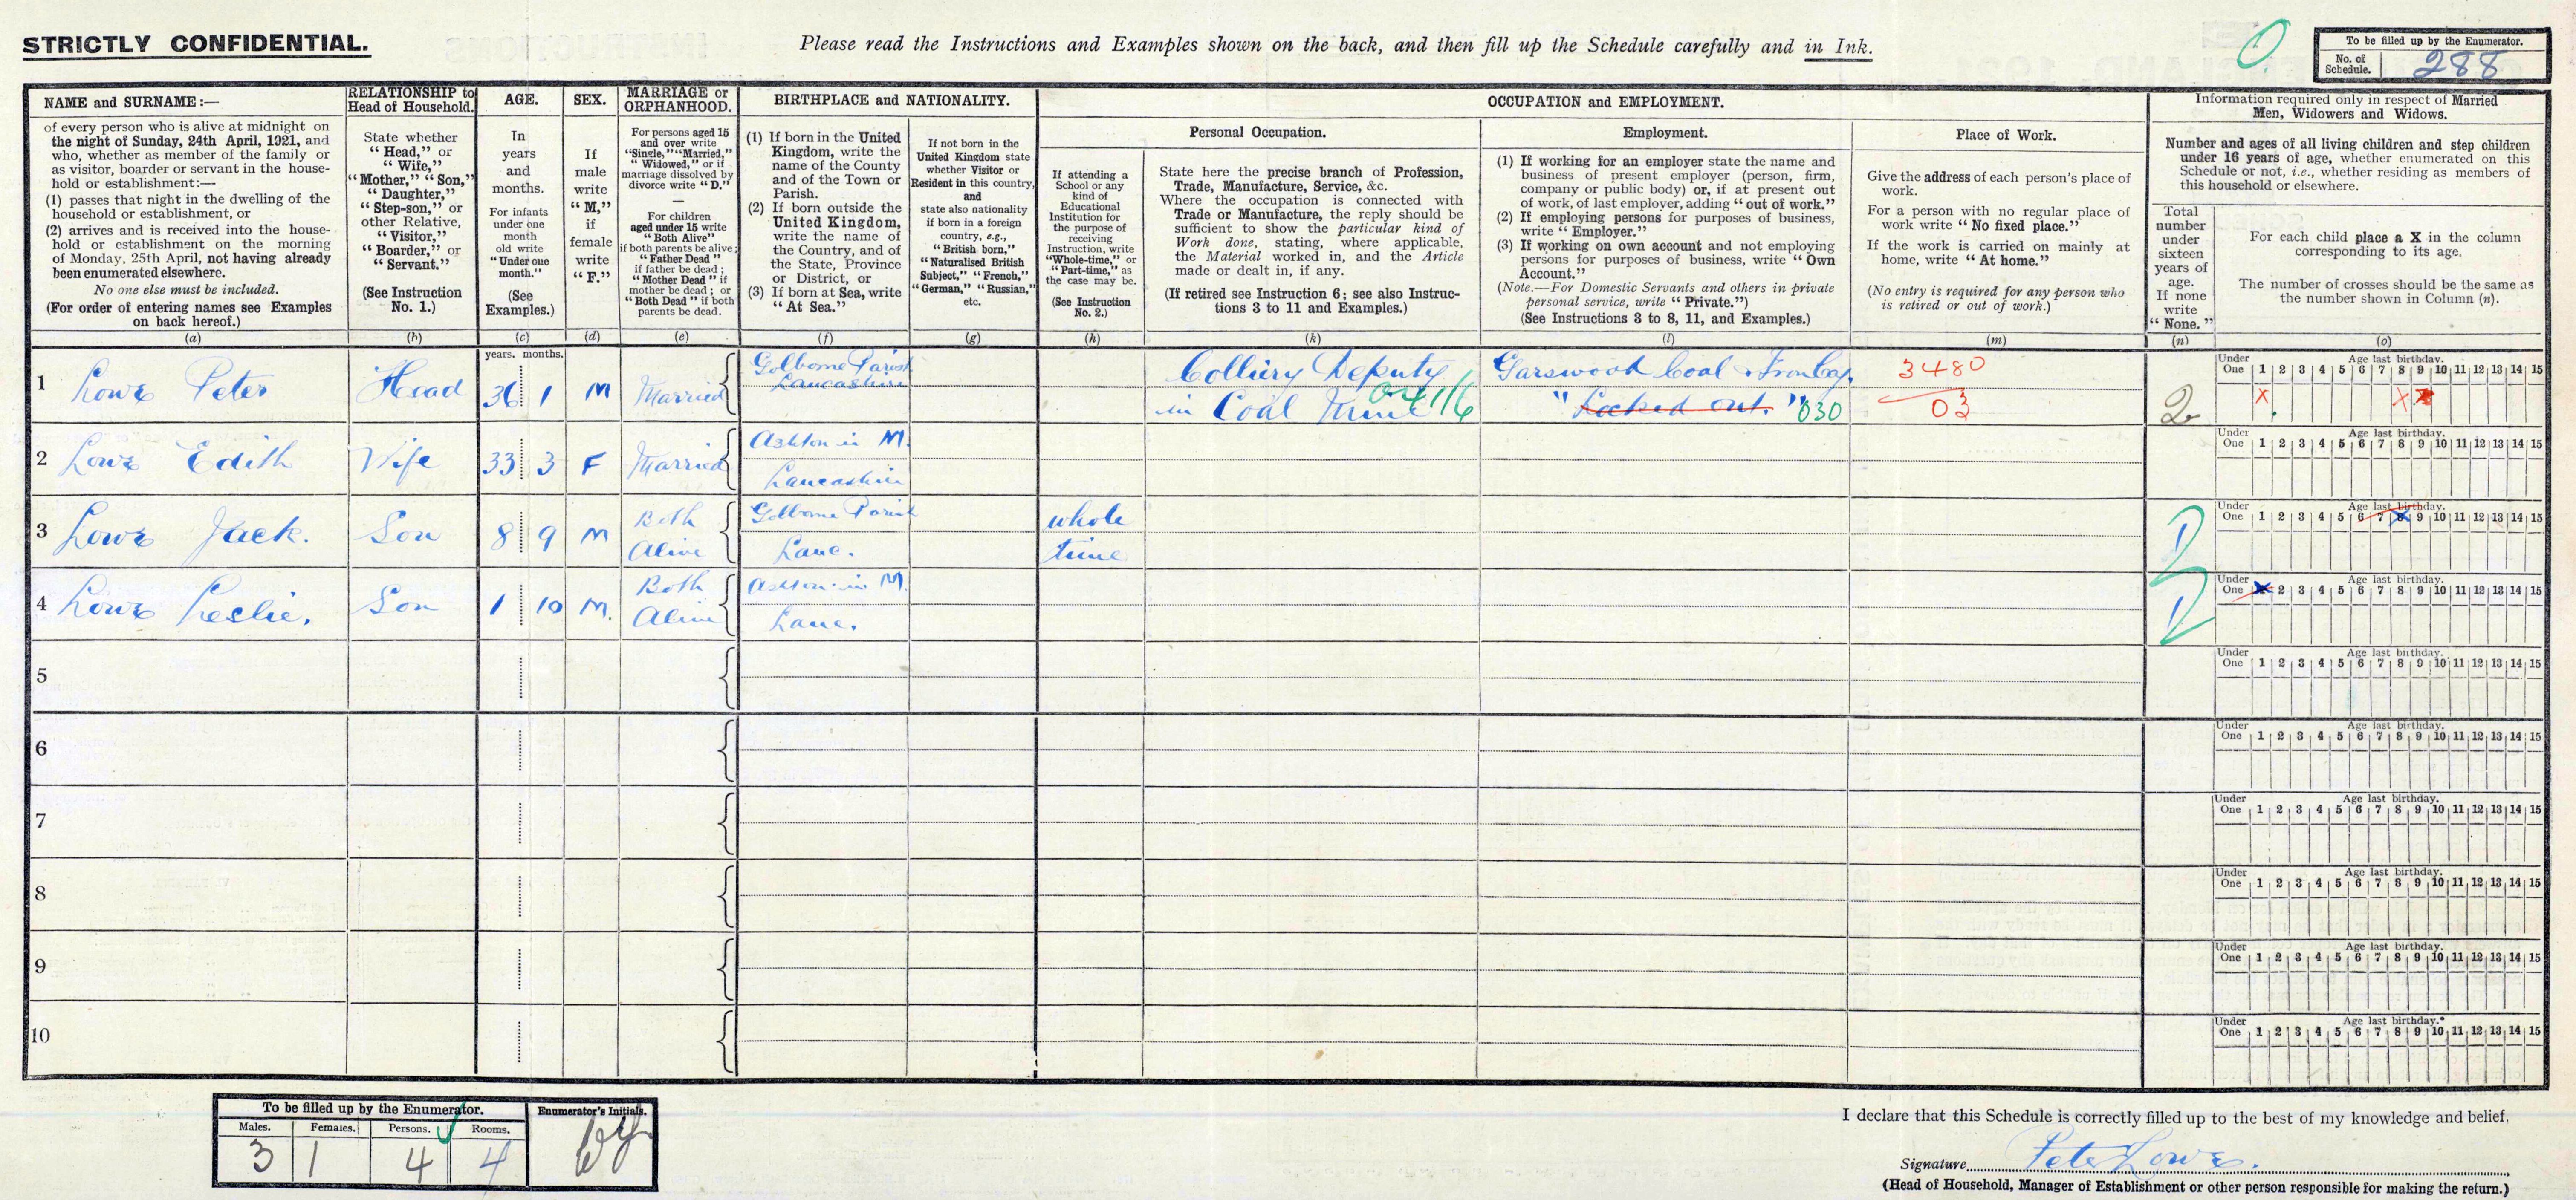 STRICTLY CONFIDENTIAL.
Please read the Instructions and Examples shown on the back, and then fill up the Schedule carefully and in Ink.
0
To be filled up by the Enumerator.
No. of Schedule. 288
NAME and SURNAME:—
of every person who is alive at midnight on
the night of Sunday, 24th April, 1921, and
who, whether as member of the family or
as visitor, boarder or servant in the house-
hold or establishment:—
(1) passes that night in the dwelling of the
household or establishment, or
(2) arrives and is received into the house-
hold or establishment on the morning
of Monday, 25th April, not having already
been enumerated elsewhere.
No one else must be included.
(For order of entering names see Examples
on back hereof.)
(a)
RELATIONSHIP to
Head of Household.
State whether
“ Head,” or
“ Wife,”
“ Mother,” “ Son,”
“ Daughter,”
“ Step-son,” or
other Relative,
“ Visitor,”
“ Boarder,” or
“ Servant.”
(See Instruction
No. 1.)
(b)
AGE.
In
years
and
months.
For infants
under one
month
old write
“ Under one
month.”
(See
Examples.)
(c)
SEX.
If
male
write
“ M,”
if
female
write
“ F.”
(d)
MARRIAGE or
ORPHANHOOD.
For persons aged 15
and over write
“Single,” “Married,”
“ Widowed,” or if
marriage dissolved by
divorce write “ D.”
—
For children
aged under 15 write
“ Both Alive”
if both parents be alive;
“ Father Dead ”
if father be dead ;
“ Mother Dead ” if
mother be dead ; or
“ Both Dead ” if both
parents be dead.
(e)
BIRTHPLACE and NATIONALITY.
(1) If born in the United
Kingdom, write the
name of the County
and of the Town or
Parish.
(2) If born outside the
United Kingdom,
write the name of
the Country, and of
the State, Province
or District, or
(3) If born at Sea, write
“ At Sea.”
(f)
If not born in the
United Kingdom state
whether Visitor or
Resident in this country,
and
state also nationality
if born in a foreign
country, e.g.,
“ British born,”
“ Naturalised British
Subject,” “ French,”
“ German,” “ Russian,”
etc.
(g)
OCCUPATION and EMPLOYMENT.
If attending a
School or any
kind of
Educational
Institution for
the purpose of
receiving
Instruction, write
“Whole-time,” or
“ Part-time,” as
the case may be.
(See Instruction
No. 2.)
(h)
Personal Occupation.
State here the precise branch of Profession,
Trade, Manufacture, Service, &c.
Where the occupation is connected with
Trade or Manufacture, the reply should be
sufficient to show the particular kind of
Work done, stating, where applicable,
the Material worked in, and the Article
made or dealt in, if any.
(If retired see Instruction 6; see also Instruc-
tions 3 to 11 and Examples.)
(k)
Employment.
(1) If working for an employer state the name and
business of present employer (person, firm,
company or public body) or, if at present out
of work, of last employer, adding “ out of work.”
(2) If employing persons for purposes of business,
write “ Employer.”
(3) If working on own account and not employing
persons for purposes of business, write “ Own
Account.”
(Note.—For Domestic Servants and others in private
personal service, write “ Private.”)
(See Instructions 3 to 8, 11, and Examples.)
(l)
Place of Work.
Give the address of each person’s place of
work.
For a person with no regular place of
work write “ No fixed place.”
If the work is carried on mainly at
home, write “ At home.”
(No entry is required for any person who
is retired or out of work.)
(m)
Information required only in respect of Married
Men, Widowers and Widows.
Number and ages of all living children and step children
under 16 years of age, whether enumerated on this
Schedule or not, i.e., whether residing as members of
this household or elsewhere.
Total
number
under
sixteen
years of
age.
If none
write
“ None. ”
(n)
For each child place a X in the column
corresponding to its age.
The number of crosses should be the same as
the number shown in Column (n).
(o)
years. months.
1 Lowe Peter Head 36 1 M Married Golborne Parish Lancashire Colliery Deputy Garswood Coal & Iron Coy. 3480
in Coal Mine 04116 " Locked out. " 030 03 2 X X
Under One 1 2 3 4 5 6 7 8 9 10 11 12 13 14 15 Age last birthday.
2 Lowe Edith Wife 33 3 F Married Ashton in M. Lancashire
Under One 1 2 3 4 5 6 7 8 9 10 11 12 13 14 15 Age last birthday.
3 Lowe Jack. Son 8 9 M Both Alive Golborne Parish Lanc. whole time 1
Under One 1 2 3 4 5 6 7 8 9 10 11 12 13 14 15 Age last birthday.
4 Lowe Leslie. Son 1 10 M. Both Alive Ashton-in M. Lanc. 1
Under One 1 2 3 4 5 6 7 8 9 10 11 12 13 14 15 Age last birthday.
5
Under One 1 2 3 4 5 6 7 8 9 10 11 12 13 14 15 Age last birthday.
6
Under One 1 2 3 4 5 6 7 8 9 10 11 12 13 14 15 Age last birthday.
7
Under One 1 2 3 4 5 6 7 8 9 10 11 12 13 14 15 Age last birthday.
8
Under One 1 2 3 4 5 6 7 8 9 10 11 12 13 14 15 Age last birthday.
9
Under One 1 2 3 4 5 6 7 8 9 10 11 12 13 14 15 Age last birthday.
10
Under One 1 2 3 4 5 6 7 8 9 10 11 12 13 14 15 Age last birthday.
To be filled up by the Enumerator.
Males. Females. Persons. Rooms.
3 1 4 4
Enumerator’s Initials.
I declare that this Schedule is correctly filled up to the best of my knowledge and belief.
Signature Peter Lowe.
(Head of Household, Manager of Establishment or other person responsible for making the return.)